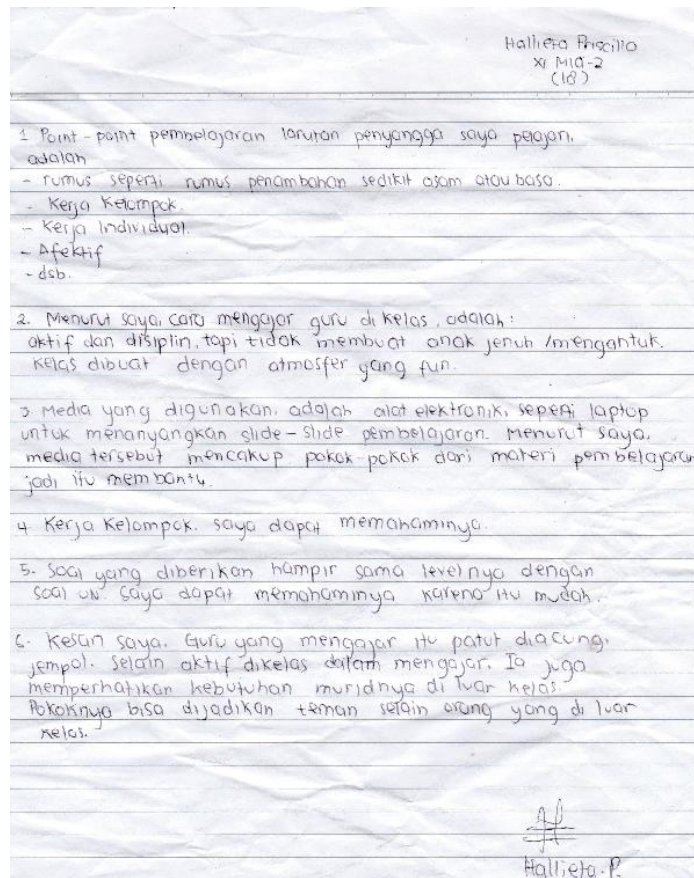 Hallieta Priscilla
XI MIA-2
(18)
1 Point - point pembelajaran larutan penyangga saya pelajari.
adalah
- rumus seperti rumus penambahan sedikit asam atau basa.
- Kerja Kelompok.
- Kerja Individual.
- Afektif
- dsb.
2. Menurut saya, cara mengajar guru di kelas, adalah :
aktif dan disiplin, tapi tidak membuat anak jenuh /mengantuk.
Kelas dibuat dengan atmosfer yang fun.
3 Media yang digunakan, adalah alat elektronik, seperti laptop
untuk menanyangkan slide-slide pembelajaran. Menurut saya,
media tersebut mencakup pokok-pokok dari materi pembelajaran
jadi itu membantu.
4 Kerja Kelompok. saya dapat memahaminya.
5. Soal yang diberikan hampir sama levelnya dengan
soal UN. Saya dapat memahaminya karena itu mudah.
6. Kesan saya. Guru yang mengajar itu patut diacung,
jempol. Selain aktif dikelas dalam mengajar. Ia juga
memperhatikan kebutuhan muridnya di luar kelas.
Pokoknya bisa dijadikan teman selain orang yang di luar
kelas.
Hallieta. P.